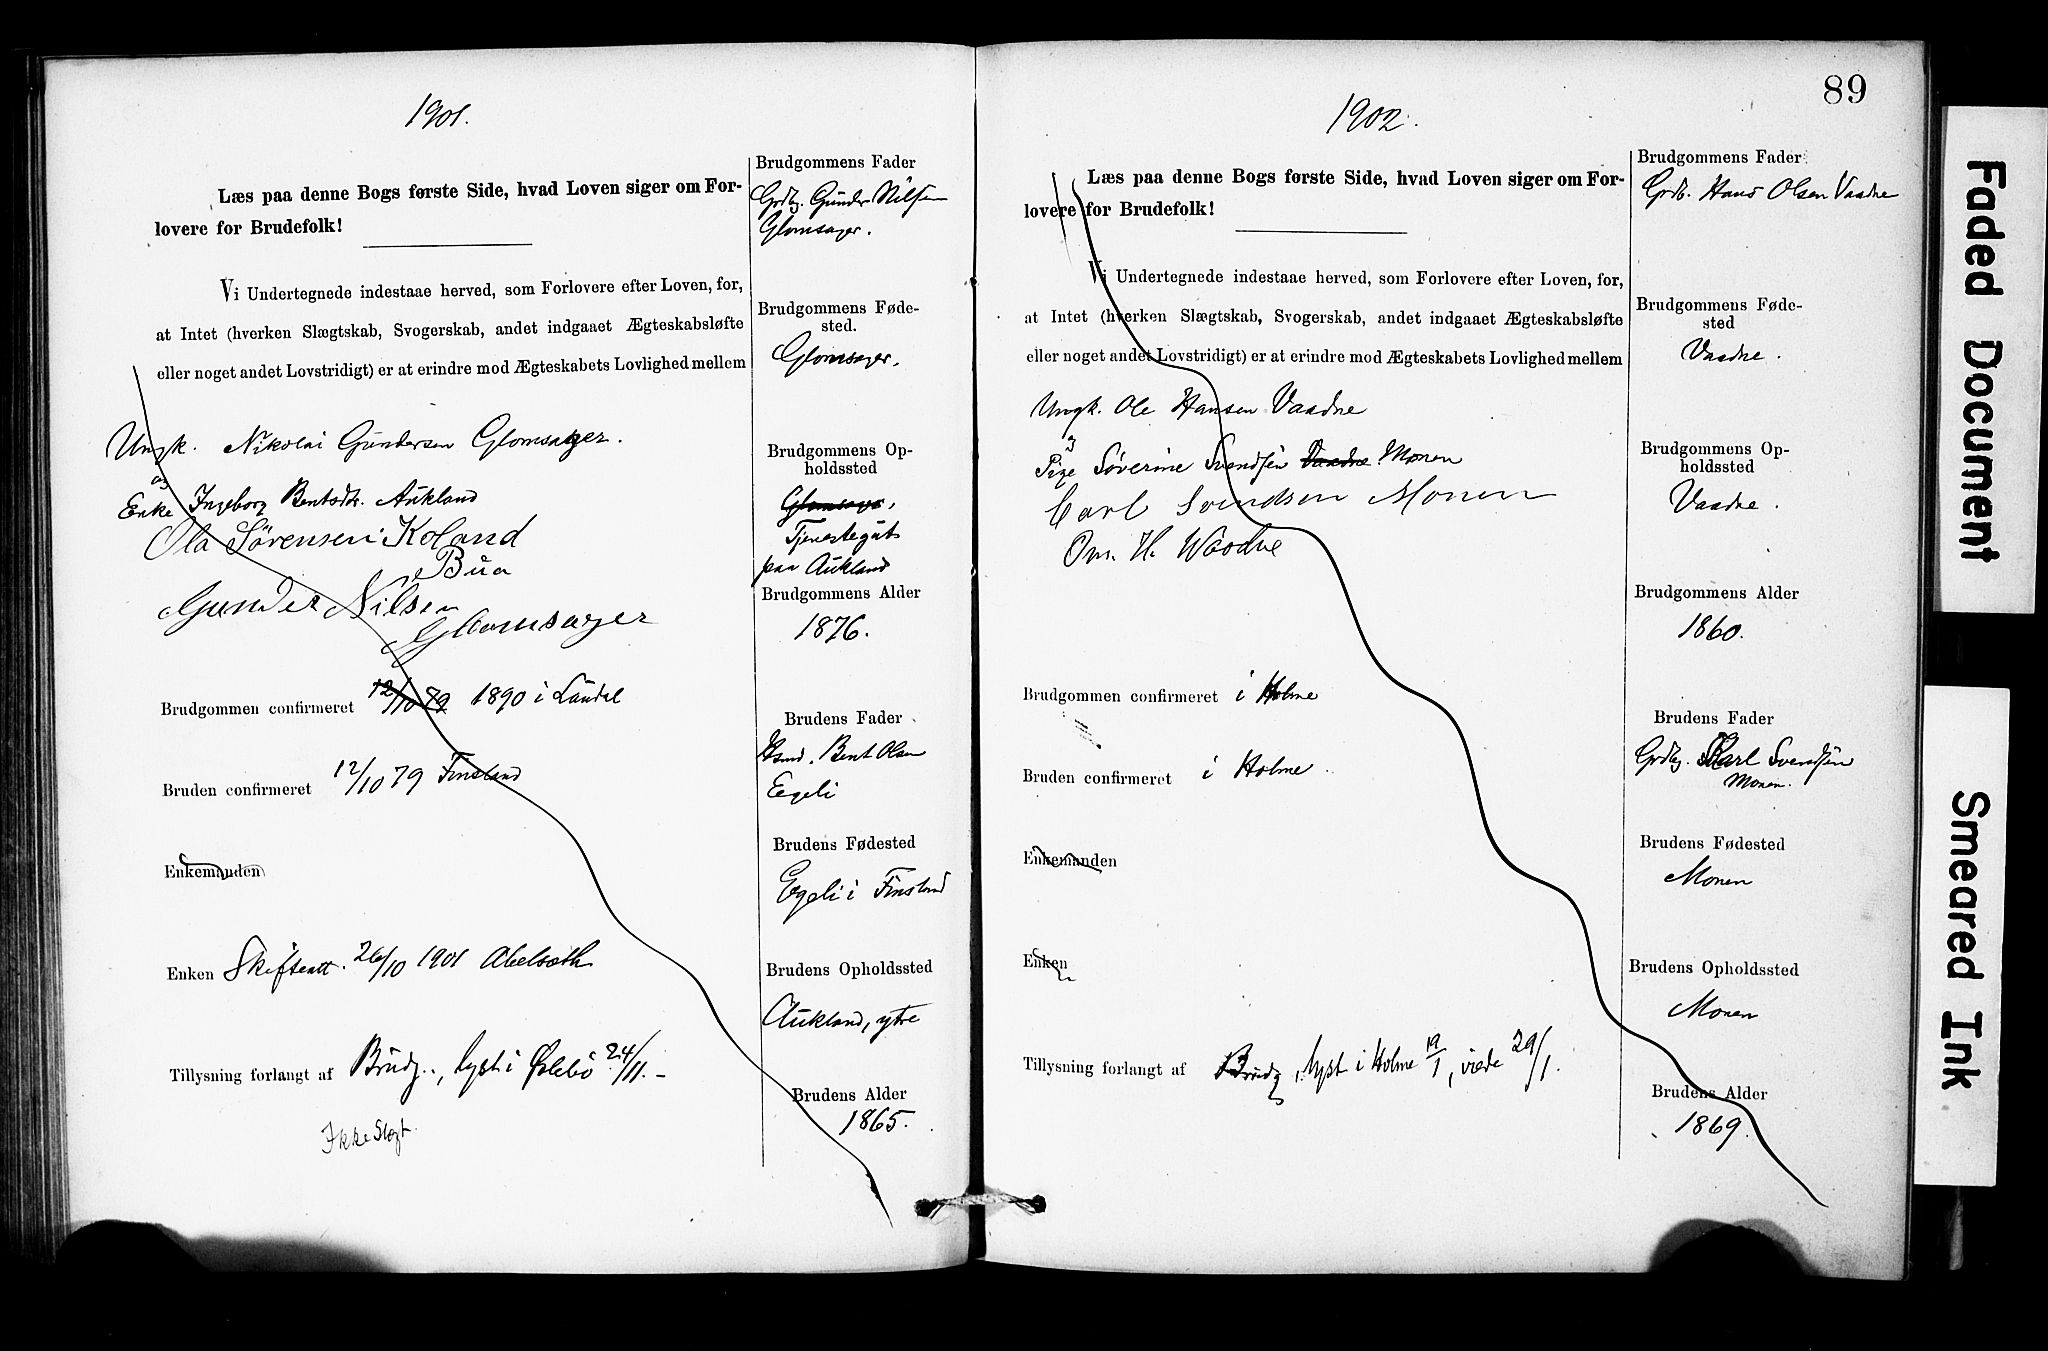 1901.
Læs paa denne Bogs første Side, hvad Loven siger om For-
lovere for Brudefolk!
Vi Undertegnede indestaae herved, som Forlovere efter Loven, for,
at Intet (hverken Slægtskab, Svogerskab, andet indgaaet Ægteskabsløfte
eller noget andet Lovstridigt) er at erindre mod Ægteskabets Lovlighed mellem
Ungk. Nikolai Gundersen Glomsager.
og
Enke Ingeborg Bentsdtr. Aukland
Ola Sørensen Koland
Bua
Gunder Nilsen
Glomsager
Brudgommen confirmeret 12/10 79 1890 i Laudal
Bruden confirmeret 12/10 79 Finsland
Enkemanden
Enken Skifteatt. 26/10 1901 Abelseth
Tillysning forlangt af Brudg., lyst i Øslebö 24/11.-
Ikke Slægt.
Brudgommens Fader
Grdbg. Gunder Nilsen
Glomsager.
Brudgommens Føde-
sted.
Glomsager.
Brudgommens Op-
holdssted
Glomsager,
Tjenestegut
paa Aukland
Brudgommens Alder
1876.
Brudens Fader
Hsmd. Bent Olsen
Egeli
Brudens Fødested
Egeli i Finsland
Brudens Opholdssted
Aukland, ytre
Brudens Alder
1865.
89
1902.
Læs paa denne Bogs første Side, hvad Loven siger om For-
lovere for Brudefolk!
Vi Undertegnede indestaae herved, som Forlovere efter Loven, for,
at Intet (hverken Slægtskab, Svogerskab, andet indgaaet Ægteskabsløfte
eller noget andet Lovstridigt) er at erindre mod Ægteskabets Lovlighed mellem
Ungk. Ole Hansen Vaadne
og
Pige Søverine Svendsen Vaadne Monen
Carl Svendsen Monen
H. Waadne
Brudgommen confirmeret i Holme
Bruden confirmeret i Holme
Enkemanden
Enken
Tillysning forlangt af Brudg, lyst i Holme 19/1, viede 29/1.
Brudgommens Fader
Grdb. Hans Olsen Vaadne
Brudgommens Føde-
sted
Vaadne.
Brudgommens Op-
holdssted
Vaadne.
Brudgommens Alder
1860.
Brudens Fader
Grdbg. Karl Svendsen
Monen.
Brudens Fødested
Monen
Brudens Opholdssted
Monen
Brudens Alder
1869.
Faded Document
Smeared Ink